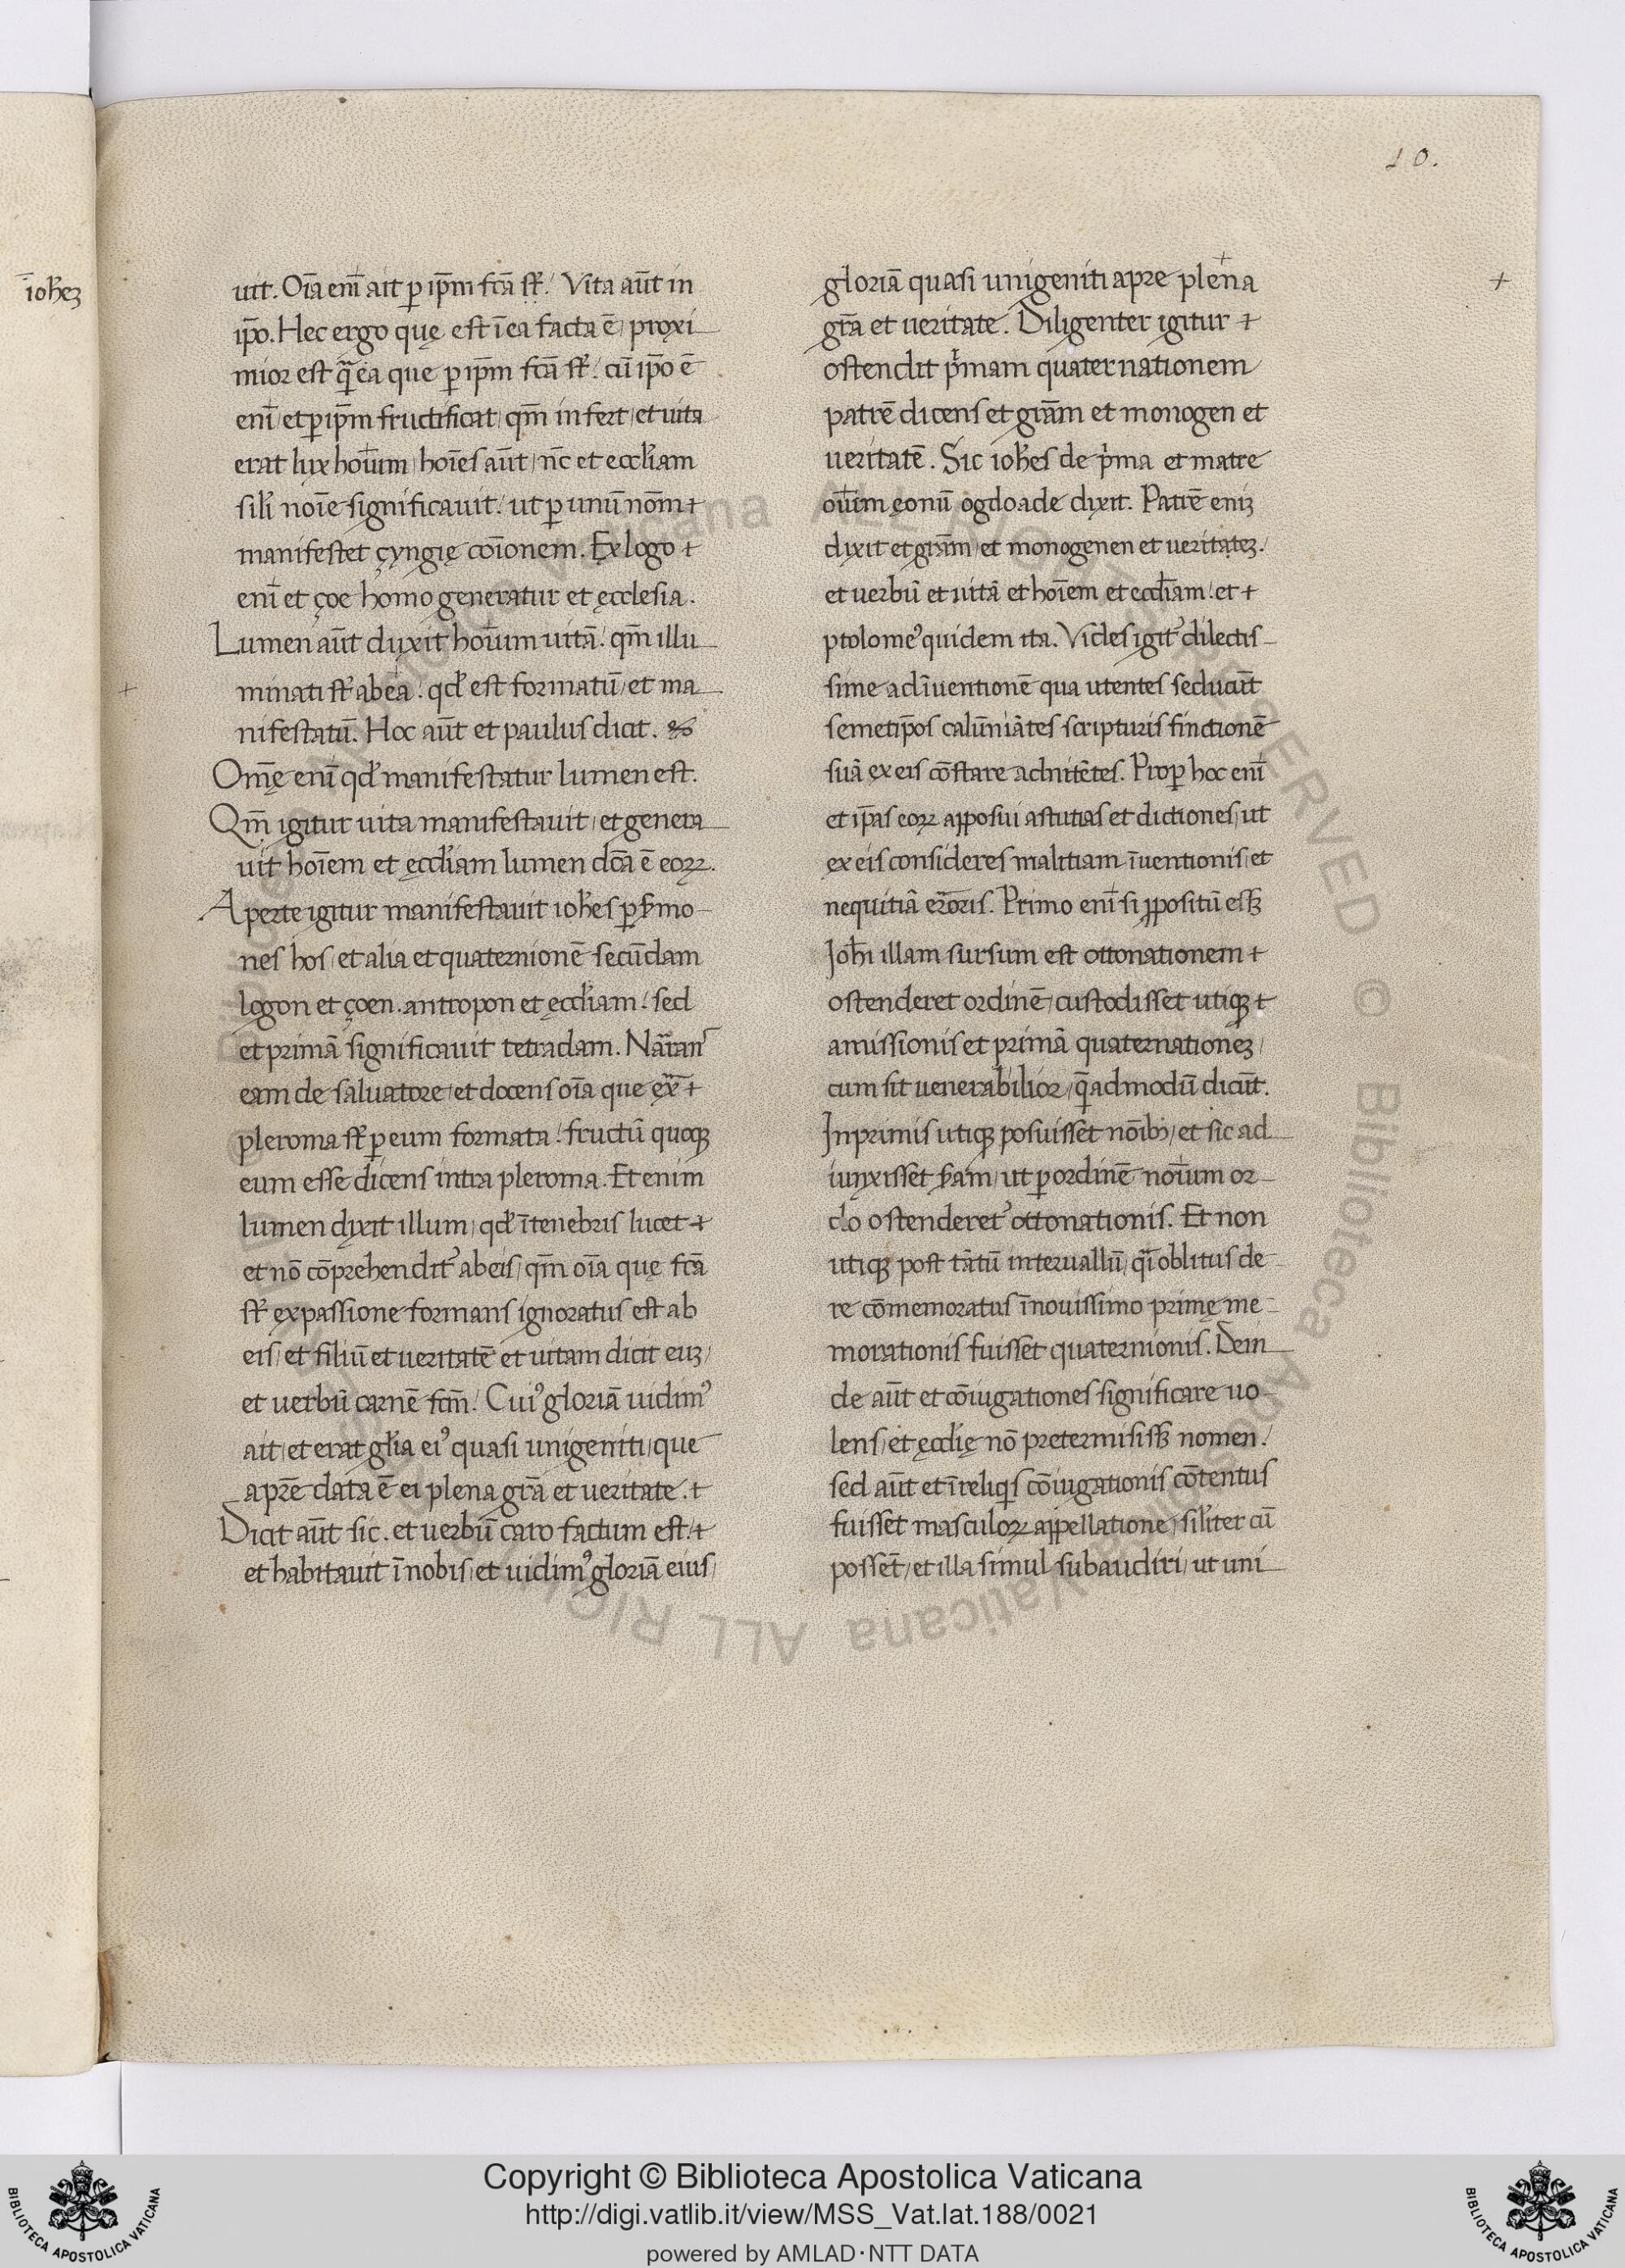 10.
ioh̄eꝫ
uit. Oīa enī ait ꝑ ip̄m fcā st̄. Vita aūt in
ip̄o. Hec ergo quę est ī ea facta ē, proxi
mior est q̄ ea que ꝑ ip̄m fcā st̄: cū ip̄o ē
enī, et ꝑ ip̄m fructificat, qm̄ infert, et uita
erat lux hoīum, hoīes aūt, nc̄ et eccl̄iam
sil̄i noīe significauit: ut ꝑ unū nom̄ +
manifestet çyngię coīonem. Ex logo +
enī et çoe homo generatur et ęcclesia.
Lumen aūt dixit hoīum uitā: qm̄ illu
minati st̄ ab ea: qd̄ est formatū, et ma
nifestatū. Hoc aūt et paulus dicit.
Om̄ę enī qd̄ manifestatur lumen est.
Qm̄ igitur uita manifestauit, et genera
uit hoīem et ęccl̄iam lumen dc̄a ē eoꝝ.
Aperte igitur manifestauit ioh̄es ꝑ s̄mo
nes hos, et alia et quaternionē secūdam
logon et çoen. antropon et ęccl̄iam: sed
et primā significauit tetradam. Nārans̄
eam de saluatore, et docens oīa que ex̄ +
pleroma st̄ ꝑ eum formata: fructū quoqꝫ
eum esse dicens intra pleroma. Et enim
lumen dixit illum, qd̄ ī tenebris lucet +
et nō cōprehendit᷑ ab eis, qm̄ oīa quę fcā
st̄ ex passione formans ignoratus est ab
eis, et filiū et ueritatē et uitam dicit euꝫ,
et uerbū carnē fcm̄: Cuiꝰ gloriā uidimꝰ
ait, et erat gl̄ia eiꝰ quasi unigeniti, que
a pr̄e data ē ei plena gr̄a et ueritate. +
Dicit aūt sic. et uerbū caro factum est. +
et habitauit ī nobis, et uidimꝰ gloriā eius,
gloriā quasi unigeniti a pre plena
gr̄a et ueritate. Diligenter igitur +
ostendit pͥmam quaternationem
patrē dicens et grām et monogen et
ueritatē. Sic ioh̄es de pͥma et matre
oīum eonū ogdoade dixit. Patrē eniꝫ
dixit et grām, et monogenen et ueritateꝫ:
et uerbū et uitā et hoīem et eccl̄iam: et +
ptolomeꝰ quidem ita. Vides igit᷑ dilectis
sime adīuentionē qua utentes seducūt
semetip̄os calūniātes scripturis finctionē
suā ex eis cōstare adnitētes. Proꝑ hoc enī
et ip̄as eoꝝ apposui astutias et dictiones, ut
ex eis consideres malitiam īuentionis, et
nequitiā erroris. Primo enī si ꝓpositū essꝫ
Joh̄i illam sursum est ottonationem +
ostenderet ordinē, custodisset utiqꝫ +
amissionis et primā quaternationeꝫ,
cum sit uenerabilior, q̄admodū dicūt.
Inprimis utiqꝫ posuisset nōibꝫ, et sic ad
iunxisset s̄am, ut ꝑ ordinē noīum or
do ostenderet᷑ ottonationis. Et non
utiqꝫ post tātū interuallū, qͣi oblitus de
re cōmemoratus ī nouissimo primę me
morationis fuisset quaternionis. Dein
de aūt et cōiugationes significare uo
lens, et ęccl̄ię nō pretermisissꝫ nomen:
sed aūt et ī reliqͥs cōiugationis cōtentus
fuisset masculoꝝ appellatione, sil̄iter cū
possent̄, et illa simul subaudiri, ut uni
Copyright © Biblioteca Apostolica Vaticana
http://digi.vatlib.it/view/MSS_Vat.lat.188/0021
powered by AMLAD·NTT DATA
BIBLIOTECA APOSTOLICA VATICANA
BIBLIOTECA APOSTOLICA VATICANA